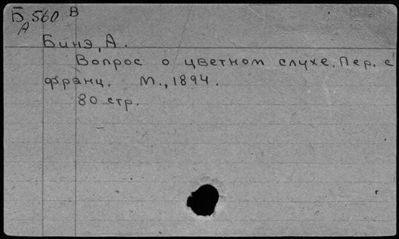 Б 560 В
А
Бинэ, А.
Вопрос о цветном слухе. Пер. с
франц. М., 1894.
80 стр.